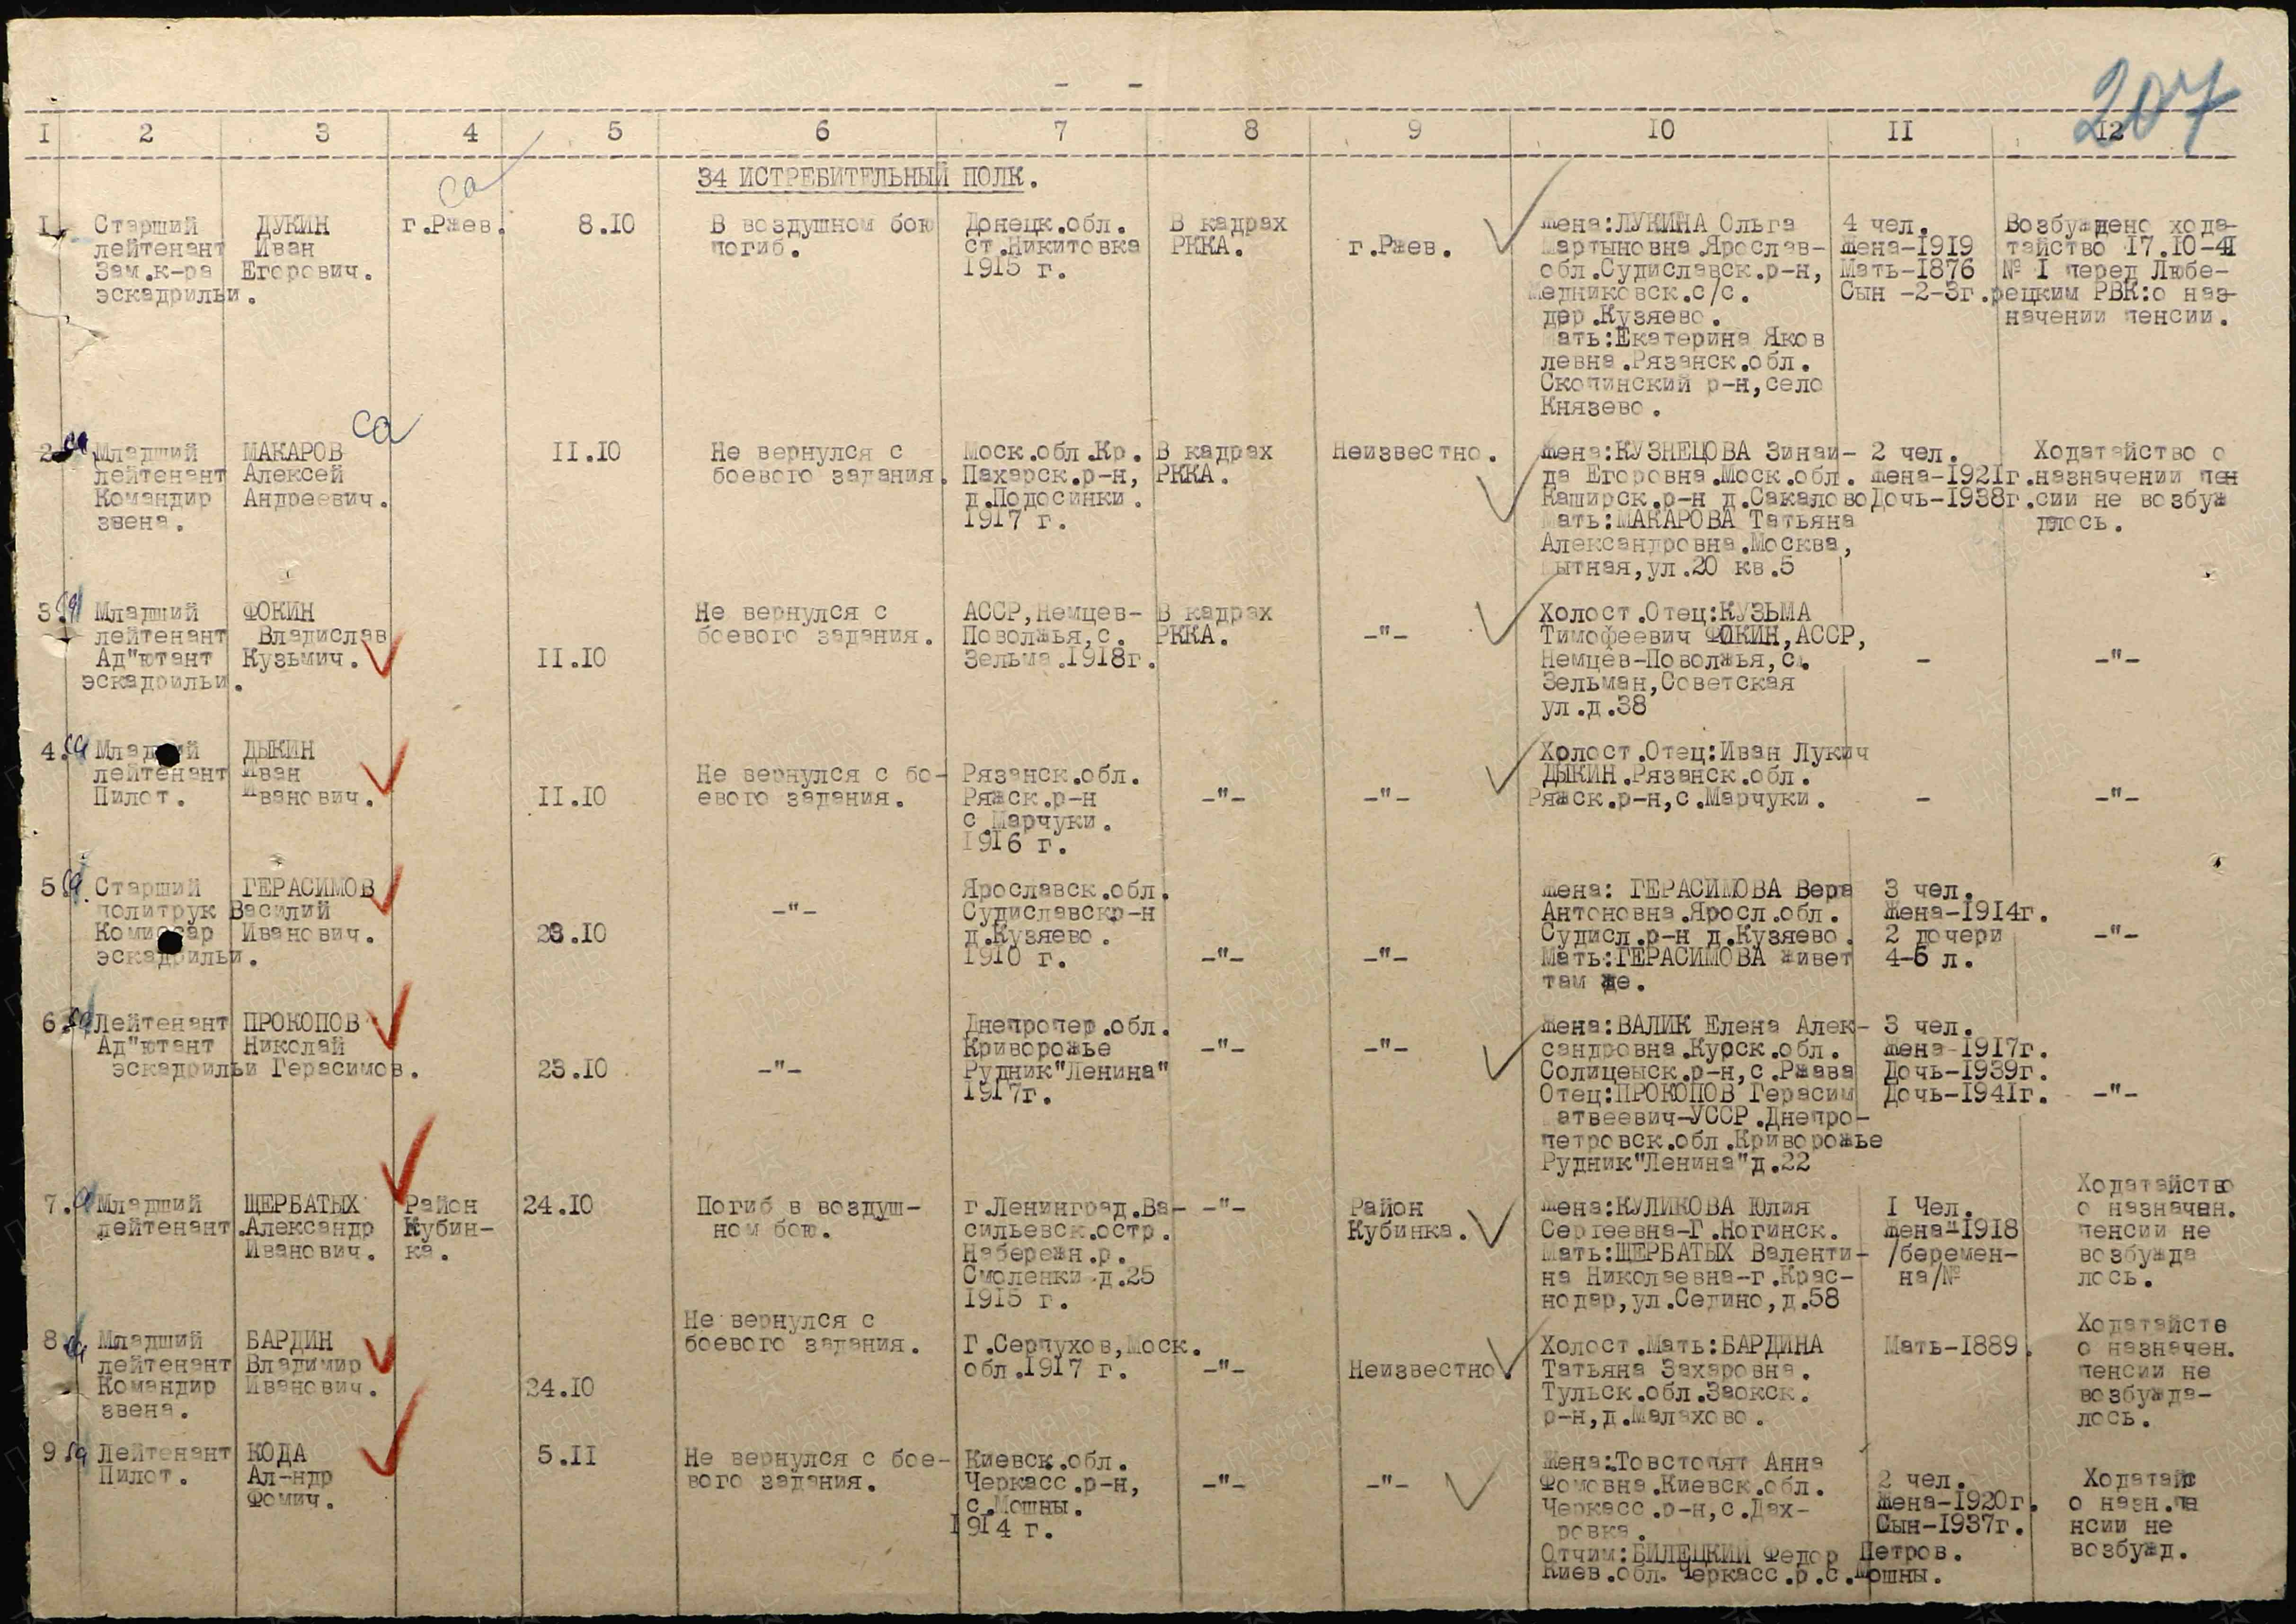 207
- -
I 2 3 4 5 6 7 8 9 10 II 12
34 ИСТРЕБИТЕЛЬНЫЙ ПОЛК.
са
I. Старший ДУКИН г.Ржев. 8.10 В воздушном бою Донецк.обл. В кадрах Жена:ЛУКИНА Ольга 4 чел. Возбуждено хода-
лейтенант Иван погиб. ст.Никитовка РККА. г.Ржев. Мартыновна.Ярослав- Жена-1919 тайство 17.10-41
Зам.к-ра Егорович. 1915 г. обл.Судиславск.р-н, Мать-1876 № I перед Любе-
эскадрильи. Медниковск.с/с. Сын -2-3г. рецким РВК:о наз-
дер.Кузяево. начении пенсии.
Мать:Екатерина Яков
левна.Рязанск.обл.
Скопинский р-н,село
Князево.
са
2. са Младший МАКАРОВ II.10 Не вернулся с Моск.обл.Кр. В кадрах Неизвестно. Жена:КУЗНЕЦОВА Зинаи- 2 чел. Ходатайство о
лейтенант Алексей боевого задания. Пахарск.р-н, РККА. да Егоровна.Моск.обл. Жена-1921г. назначении пен
Командир Андреевич. д.Подосинки. Каширск.р-н д.Сакалово Дочь-1938г. сии не возбуж
звена. 1917 г. Мать:МАКАРОВА Татьяна длось.
Александровна.Москва,
ытная,ул.20 кв.5
3. са Младший ФОКИН Не вернулся с АССР,Немцев- В кадрах Холост.Отец:КУЗЬМА
лейтенант Владислав боевого задания. Поволжья,с. РККА. -"- Тимофеевич ФОКИН,АССР,
Ад"ютант Кузьмич. II.10 Зельма.1918г. Немцев-Поволжья,с. - -"-
эскадрильи. Зельман,Советская
ул.д.38
4. са Младший ДЫКИН Холост.Отец:Иван Лукич
лейтенант Иван Не вернулся с бо- Рязанск.обл. ДЫКИН.Рязанск.обл.
Пилот. Иванович. II.10 евого задания. Ряжск.р-н -"- -"- Ряжск.р-н,с.Марчуки. - -"-
с.Марчуки.
1916 г.
5. са Старший ГЕРАСИМОВ Ярославск.обл. Жена: ГЕРАСИМОВА Вера 3 чел.
политрук Василий -"- Судиславскр-н Антоновна.Яросл.обл. Жена-1914г.
Комиссар Иванович. 23.10 д.Кузяево. Судисл.р-н д.Кузяево. 2 дочери -"-
эскадрильи. 1910 г. -"- -"- Мать:ГЕРАСИМОВА живет 4-6 л.
там же.
6. са Лейтенант ПРОКОПОВ Днепропер.обл. Жена:ВАЛИК Елена Алек- 3 чел.
Ад"ютант Николай Криворожье -"- -"- сандровна.Курск.обл. Жена-1917г.
эскадрильи Герасимов. 23.10 -"- Рудник"Ленина" Солнценск.р-н,с.Ржава Дочь-1939г.
1917г. Отец:ПРОКОПОВ Герасим Дочь-1941г. -"-
атвеевич-УССР.Днепро-
петровск.обл.Криворожье
Рудник"Ленина"д.22
Ходатайство
7. са Младший ЩЕРБАТЫХ Район 24.10 Погиб в воздуш- г.Ленинград.Ва- -"- Район Жена:КУЛИКОВА Юлия I Чел. о назначен.
лейтенант. Александр Кубин- ном бою. сильевск.остр. Кубинка. Сергеевна-Г.Ногинск. Жена-1918 пенсии не
Иванович. ка. Набережн.р. Мать:ЩЕРБАТЫХ Валенти- /беремен- возбужда
Смоленки д.25 на Николаевна-г.Крас- на/№ лось.
1915 г. нодар,ул.Седино,д.58
Не вернулся с Ходатайств
8. са Младший БАРДИН боевого задания. Г.Серпухов,Моск. Холост.Мать:БАРДИНА Мать-1889. о назначен.
лейтенант Владимир обл.1917 г. -"- Неизвестно Татьяна Захаровна. пенсии не
Командир Иванович. 24.10 Тульск.обл.Заокск. возбужда-
звена. р-н,д.Малахово. лось.
9 са Лейтенант КОДА 5.II Не вернулся с бое- Киевск.обл. Жена:Товстопят Анна
Пилот. Ал-ндр вого задания. Черкасс.р-н, -"- -"- Фомовна.Киевск.обл. 2 чел. Ходатайс
Фомич. с.Мошны. Черкасс.р-н,с.Дах- Жена-1920г. о назн.пе
1914 г. ровка. Сын-1937г. нсии не
Отчим:БИЛЕЦКИЙ Федор Петров. возбужд.
Киев.обл.Черкасс.р.с.Мошны.